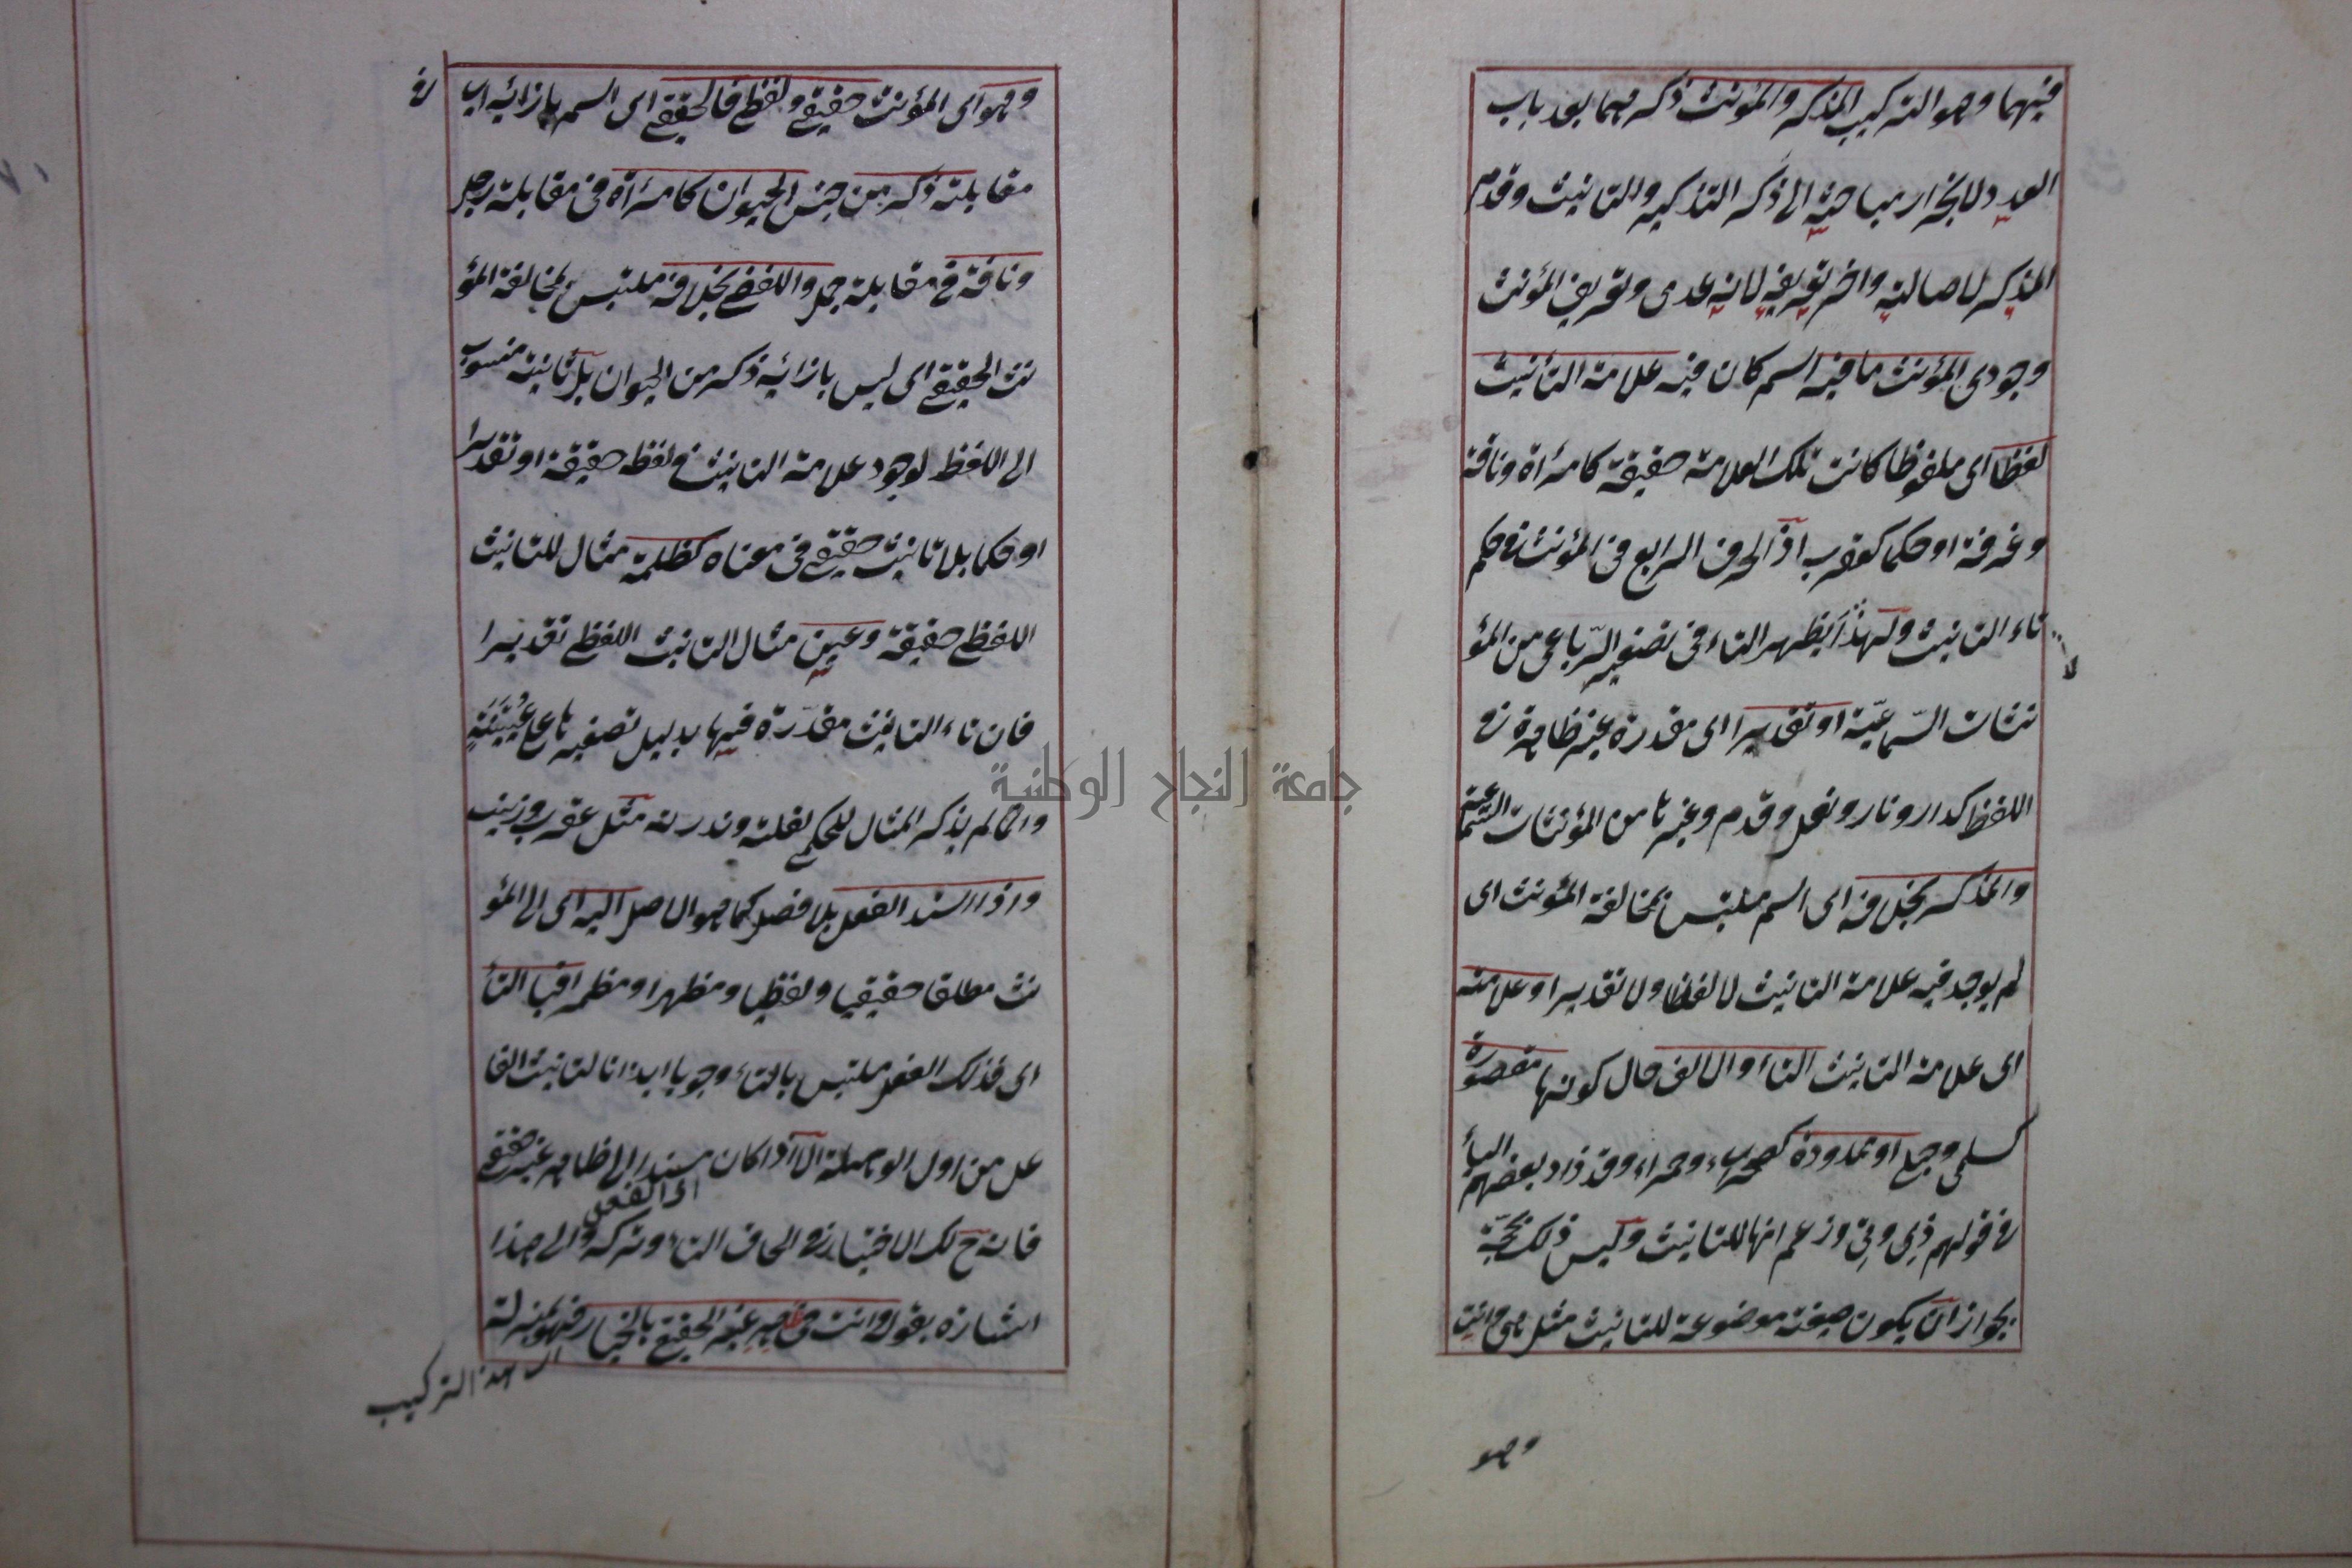 فيهما وهو التركيب المذكر والمؤنث ذكرهما بعد باب
العدد لانجرار مباحثه الى ذكر التذكير والتانيث وقدم
المذكر لاصالته واخر تعريفه لانه عدمى وتعريف المؤنث
وجودى المؤنث ما فيه اسم كان فيه علامة التأنيث
لفظا اى ملفوظا كانت تلك العلامة حقيقة كامرأة وناقة
وغرفة او حكما كعقرب اذ الحرف الرابع فى المؤنث فى حكم
تاء التانيث ولهذا يظهر التاء فى تصغير الرّباعى من المؤ
نثات السّماعيّة او تقديرا اى مقدرة غير ظاهرة فى
اللفظ كدار ونار ونعل وقدم وغيرها من المؤنثات السّماعية
والمذكر بخلافه اى اسم ملتبس بمخالفة المؤنث اى
لم يوجد فيه علامة التانيث لا لفظا ولا تقديرا وعلامته
اى علامة التانيث التاء والالف حال كونها مقصورة
كسلمى وحبلى او ممدودة كصحراء وحمراء وقد زاد بعضهم الياء
فى قولهم ذى وتى وزعم انها للتانيث وليس ذلك بحجّة
بجواز ان يكون صيغة موضوعة للتانيث مثل هى وانت
وهو
وهو اى المؤنث حقيقي ولفظي فالحقيقي اى اسم بازائه اى
فى
مقابلته ذكر من جنس الحيوان كامرأة فى مقابلة رجل
وناقة فى مقابلة جمل واللفظي بخلافه ملتبس بمخالفة المؤ
نث الحقيقي اى ليس بازائه ذكر من الحيوان بل تانيثه منسوب
الى اللفظ لوجود علامة التانيث فى لفظه حقيقة او تقديرا
او حكما بلا تانيث حقيقي فى معناه كظلمة مثال للتانيث
اللفظي حقيقة وعين مثال التانيث اللفظي تقديرا
فان تاء التانيث مقدّرة فيها بدليل تصغيرها على عُيَيْنَةٍ
وانما لم يذكر المثال للحكمي لقلته وندرته مثل عقرب وزينب
واذا اسند الفعل بلا فصل كما هو الاصل اليه اى الى المؤ
نث مطلقا حقيقيا ولفظيا ومظهرا ومظمرا فبالتاء
اى فذلك الفعل ملتبس بالتاء وجوبا ايذانا لتانيث الفا
عل من اول الوهلة الا اذا كان مسندا الى ظاهر غير حقيقي
اى الفعل
فانه ح لك الاختيار فى الحاق التاء وتركه والى هذا
اشاره بقوله وانت فى ظاهر غير الحقيقي بالخيار فهو بمنزلة
هذا التركيب
جامعة النجاح الوطنية